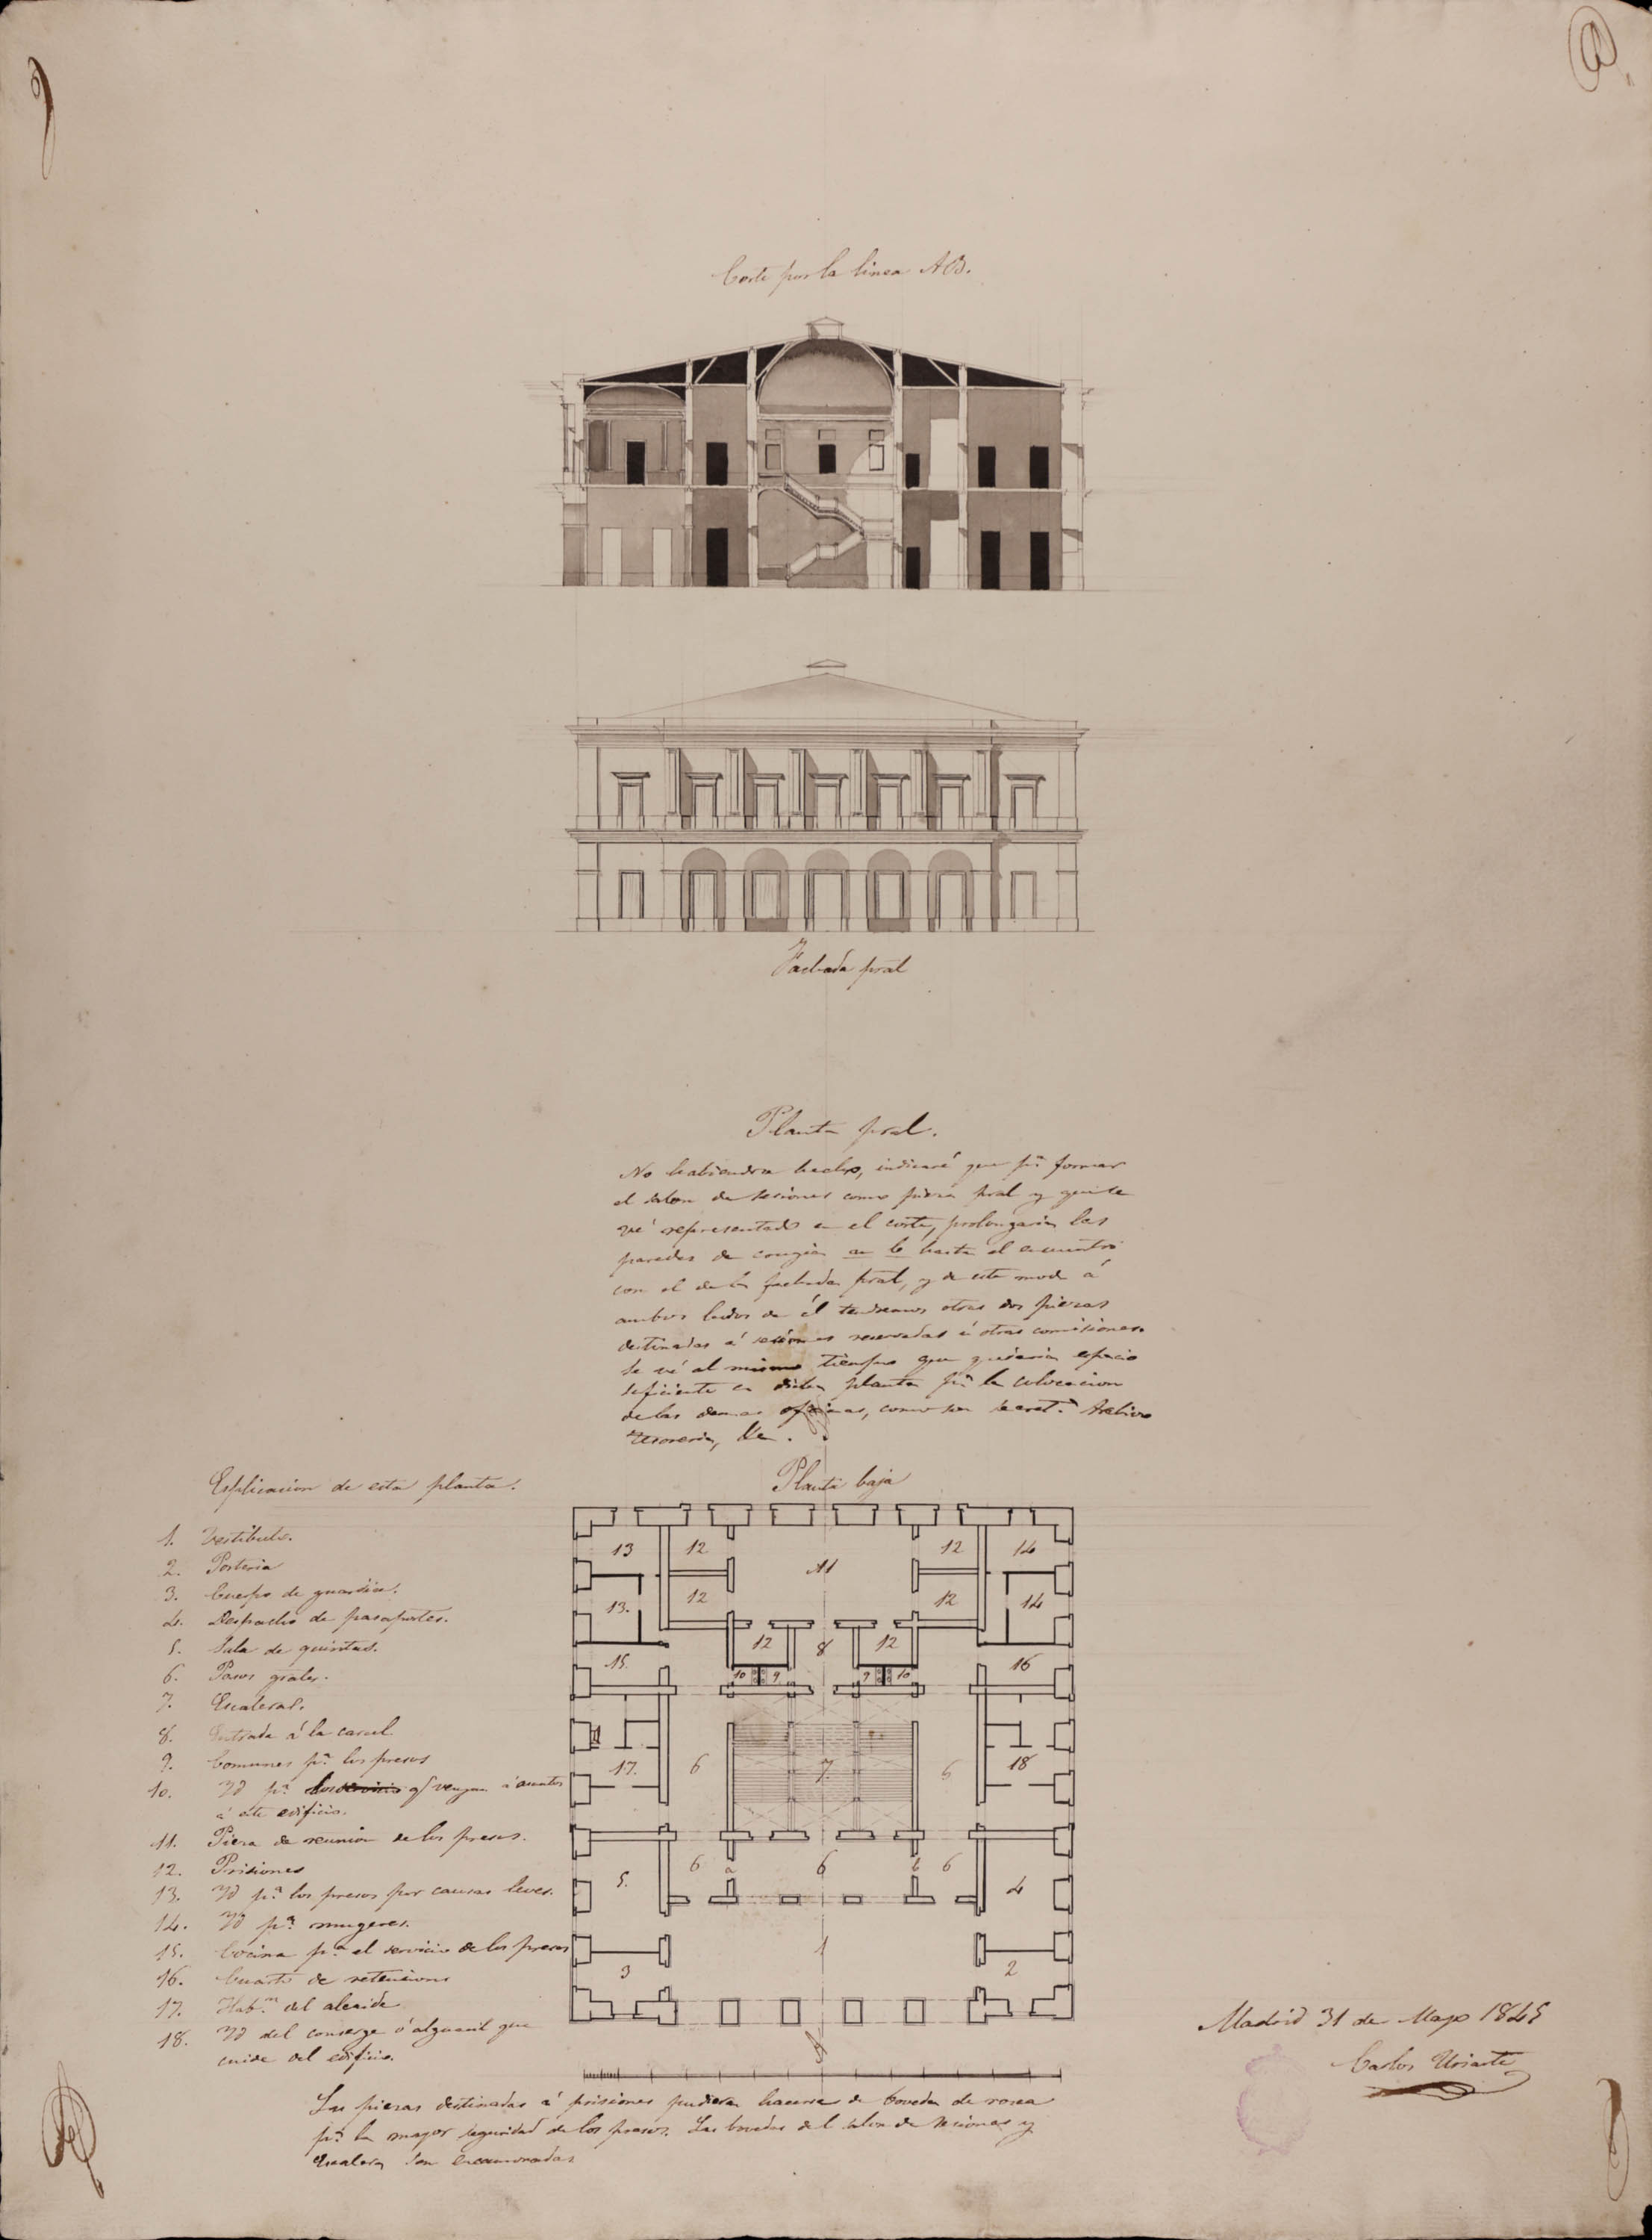 Corte por la linea AB.
Fachada pral
Planta pral.
No habiendola hecho, indicaré que pª formar
el salon de sesiones como pieza pral y que se
vé representado en el corte, prolongaria las
paredes de crugia a b hasta el encuentro
con el de la fachada pral, y de este modo á
ambos lados de él tendreamos otras dos piezas
destinadas á sesiones reservadas ú otras comisiones.
Se vé al mismo tiempo que quedaria espacio
suficiente en dicha planta pª la colocacion
de las demas oficinas, como son secretª Archivo
tesoreria, &a.
Planta baja
Esplicacion de esta planta.
1. Vestibulo.
2. Porteria
3. Cuerpo de guardia.
4. Despacho de pasaportes.
5. Sala de quintas.
6. Pasos grales.
7. Escaleras.
8. Entrada á la carcel
9. Comunes pª los presos
10. Yd pª qe vengan á asuntos
á este edificio.
11. Pieza de reunion de los presos.
12. Prisiones
13. Yd pª los presos por causas leves.
14. Yd pª mugeres.
15. Cocina pª el servicio de los presos
16. Cuarto de retenciones
17. Habon del alcaide
18. Yd del conserge ó alguacil que
cuide del edificio.
13 12 11 12 14
13. 12 12 14
15. 12 8 12 16
10 9 9 10
17. 6 7 6 18
5. 6 a 6 b 6 4
3 1 2
A
Las piezas destinadas á prisiones pudieran hacerse de boveda de rosca
pª la mayor seguridad de los presos. Las bovedas del salon de sesiones y
escalera son encamonadas
Madrid 31 de Mayo 1845
Carlos Uriarte